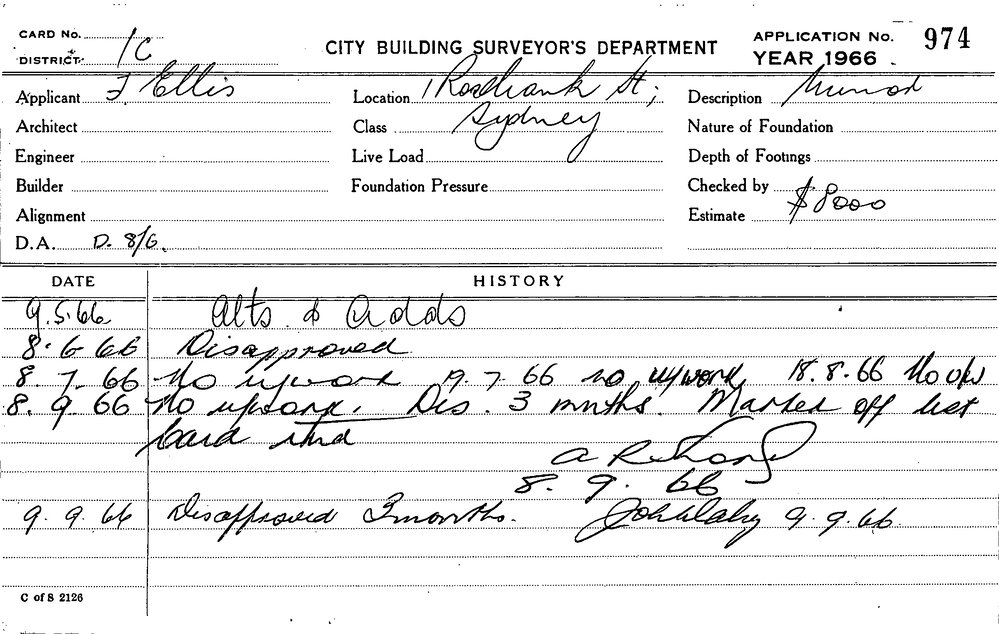 CARD No.
DISTRICT 1C
CITY BUILDING SURVEYOR'S DEPARTMENT
APPLICATION No. 974
YEAR 1966
Applicant F Ellis
Location 1 Rosebank St; Sydney
Description
Architect
Class
Nature of Foundation
Engineer
Live Load
Depth of Footings
Builder
Foundation Pressure
Checked by
Alignment
Estimate $8000
D.A. D. 8/6.
DATE HISTORY
9.5.66 Alts & Adds
8.6.66 Disapproved
8.7.66 No 19.7.66 no 18.8.66 No
8.9.66 No Dis. 3 mnths. Marked off list
Card
8.9.66
9.9.66 Disapproved 3 months. 9.9.66
C of S 2126